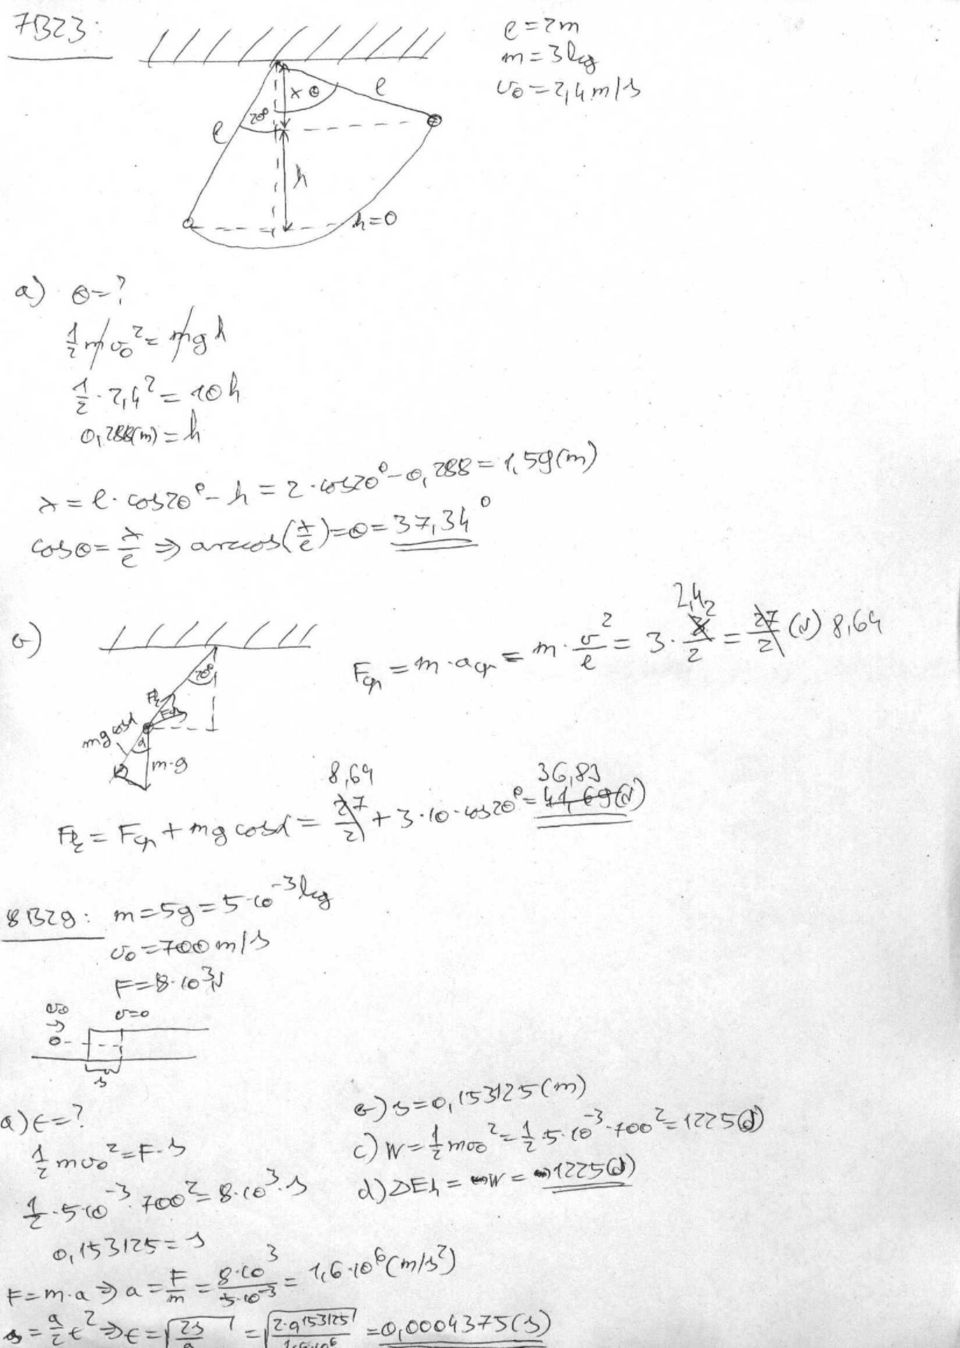 7B23:
l=2m
m=3kg
v₀=2,4m/s
20°
x
θ
l
l
h
h=0
a) θ=?
½mv₀²=mgh
½·2,4²=10h
0,288(m)=h
x=l·cos20°-h=2·cos20°-0,288=1,59(m)
cosθ=x/l⇒arccos(x/l)=θ=37,34°
20°
mgcosα
α
m·g
F_cp=m·a_cp=m·v²/l=3·2,4²/2=27/2(N) 8,64
8,64
36,83
=27/2+3·10·cos20°=41,69(N)
8B29: m=5g=5·10⁻³kg
v₀=700m/s
F=8·10³N
v₀
v=0
s
a) t=?
½mv₀²=F·s
½·5·10⁻³·700²=8·10³·s
0,153125=s
F=m·a⇒a=F/m=8·10³/5·10⁻³=1,6·10⁶(m/s²)
s=a/2 t²⇒t=√(2s/a)=√(2·0,153125/1,6·10⁶)=0,0004375(s)
s=0,153125(m)
c) W=½mv₀²=½·5·10⁻³·700²=1225(J)
d) ΔEh=-W=-1225(J)